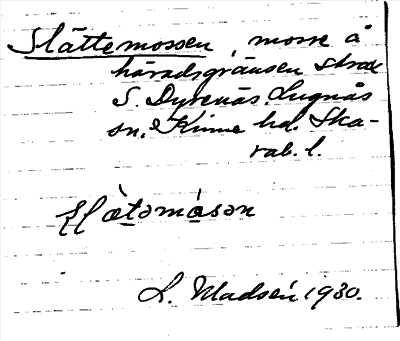 Slättemossen, mosse å
häradsgränsen strax
S. Dyrenäs. Lugnås
sn. Kinne hd. Ska-
rab. l.
L. Madsén 1930.